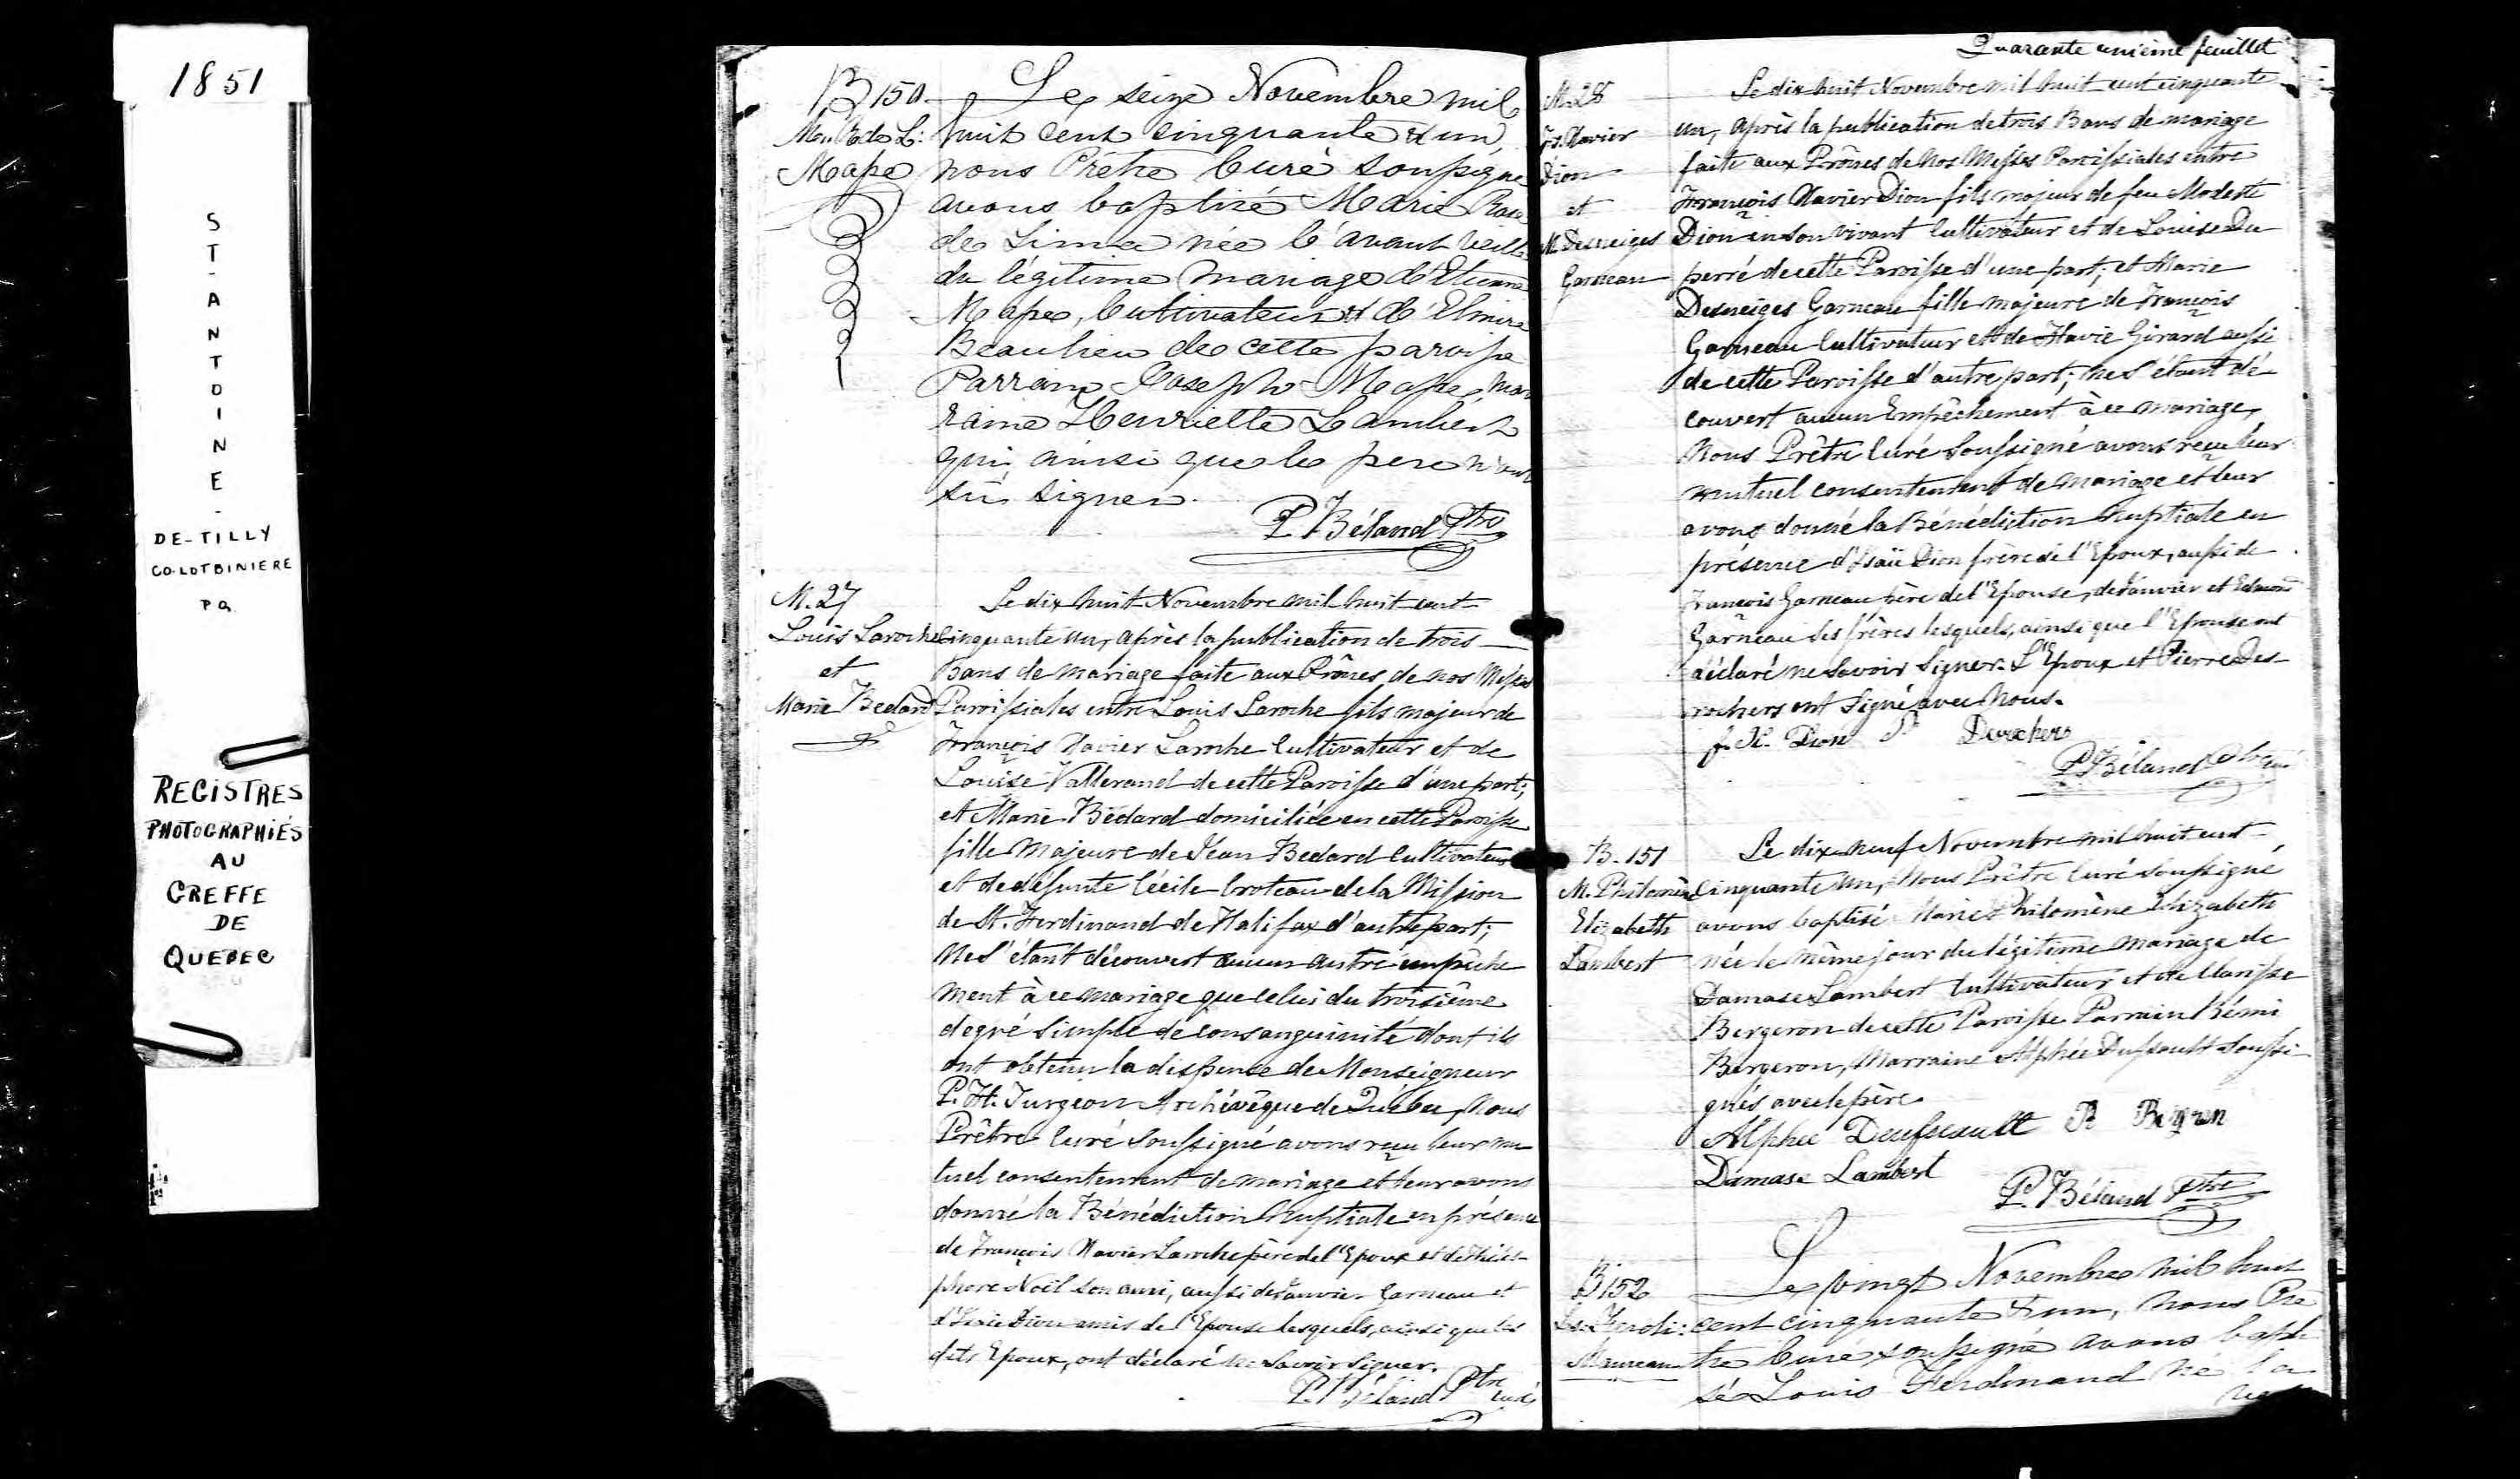 1851
ST-ANTOINE-
DE-TILLY
CO-LOTBINIERE
PQ
REGISTRES
PHOTOGRAPHIÉS
AU
GREFFE
DE
QUEBEC
B 150.
Mape
Le seize Novembre mil
huit cent cinquante & un,
nous Prêtre Curé soussigné
avons baptisé Marie Rose
de Lima née l'avant veille
du légitime mariage d'Etienne
Mape, Cultivateur & d'Elmire
Beaulieu de cette paroisse
Parrain Joseph Mape, mar
raine Henriette Lambert
qui, ainsi que le pere n'ont
sû signer.
P. Béland Ptre
M. 27
Louis Laroche
et
Marie Bedard
Le dix huit Novembre mil huit cent
Cinquante un, après la publication de trois
Bans de mariage faite aux Prônes de nos Messes
Paroissiales entre Louis Laroche fils majeur de
François Xavier Laroche Cultivateur et de
Louise Vallerand de cette Paroisse d'une part;
et Marie Bédard domiciliée en cette Paroisse
fille majeure de Jean Bedard Cultivateur
et de défunte Cécile Croteau de la Mission
de St. Ferdinand de Halifax d'autre part;
Ne s'étant découvert aucun autre empêche
ment à ce mariage que celui du troisième
degré simple de consanguinité dont ils
ont obtenu la dispense de Monseigneur
P. F. Turgeon Archévêque de Québec, Nous
Prêtre Curé soussigné avons reçu leur mu
tuel consentement de mariage et leur avons
donné la Bénédiction Nuptiale en présence
de François Xavier Laroche père de l'Epoux et de Théles-
phore Noël son ami, aussi de Janvier Garneau et
d'Isaïe Dion amis de l'Epouse lesquels, ainsi que les
dits Epoux, ont déclaré ne savoir signer.
P. Béland Ptre curé
Quarante unième feuillet
M. 28
Fs. Xavier
Dion
et
M. Desneiges
Garneau
Le dix huit Novembre mil huit cent cinquante
un, après la publication de trois Bans de mariage
faite aux Prônes de nos Messes Paroissiales entre
François Xavier Dion fils majeur de feu Modeste
Dion en son vivant Cultivateur et de Louise Du
perré de cette Paroisse d'une part; et Marie
Desneiges Garneau fille majeure de François
Garneau Cultivateur et de Flavie Girard aussi
de cette Paroisse d'autre part; Ne s'étant dé-
couvert aucun Empêchement à ce mariage,
Nous Prêtre Curé soussigné avons reçu leur
mutuel consentement de mariage et leur
avons donné la Bénédiction Nuptiale en
présence d'Isaïe Dion frère de l'Epoux, aussi de
François Garneau père de l'Epouse, de Janvier et Edmond
Garneau ses frères lesquels, ainsi que l'Epouse ont
déclaré ne savoir signer. L'Epoux et Pierre Des-
rochers ont signé avec Nous.
f. X. Dion P Derochers
P. Béland
B. 151
M. Philomène
Elizabeth
Lambert
Le dix neuf Novembre mil huit cent
Cinquante un, Nous Prêtre Curé soussigné
avons baptisé Marie Philomène Elizabeth
née le même jour du légitime mariage de
Damase Lambert Cultivateur et de Clarisse
Bergeron de cette Paroisse. Parrain Rémi
Bergeron, Marraine Alphée Dussault soussi-
gnés avec le père.
Alphee Deusseault R Bergron
Damase Lambert
P. Béland Ptre
B 152
Ls. Ferdi:
Le vingt Novembre mil huit
cent cinquante & un, nous Prê
tre Curé soussigné avons bapti
sé Louis Ferdinand né l'a